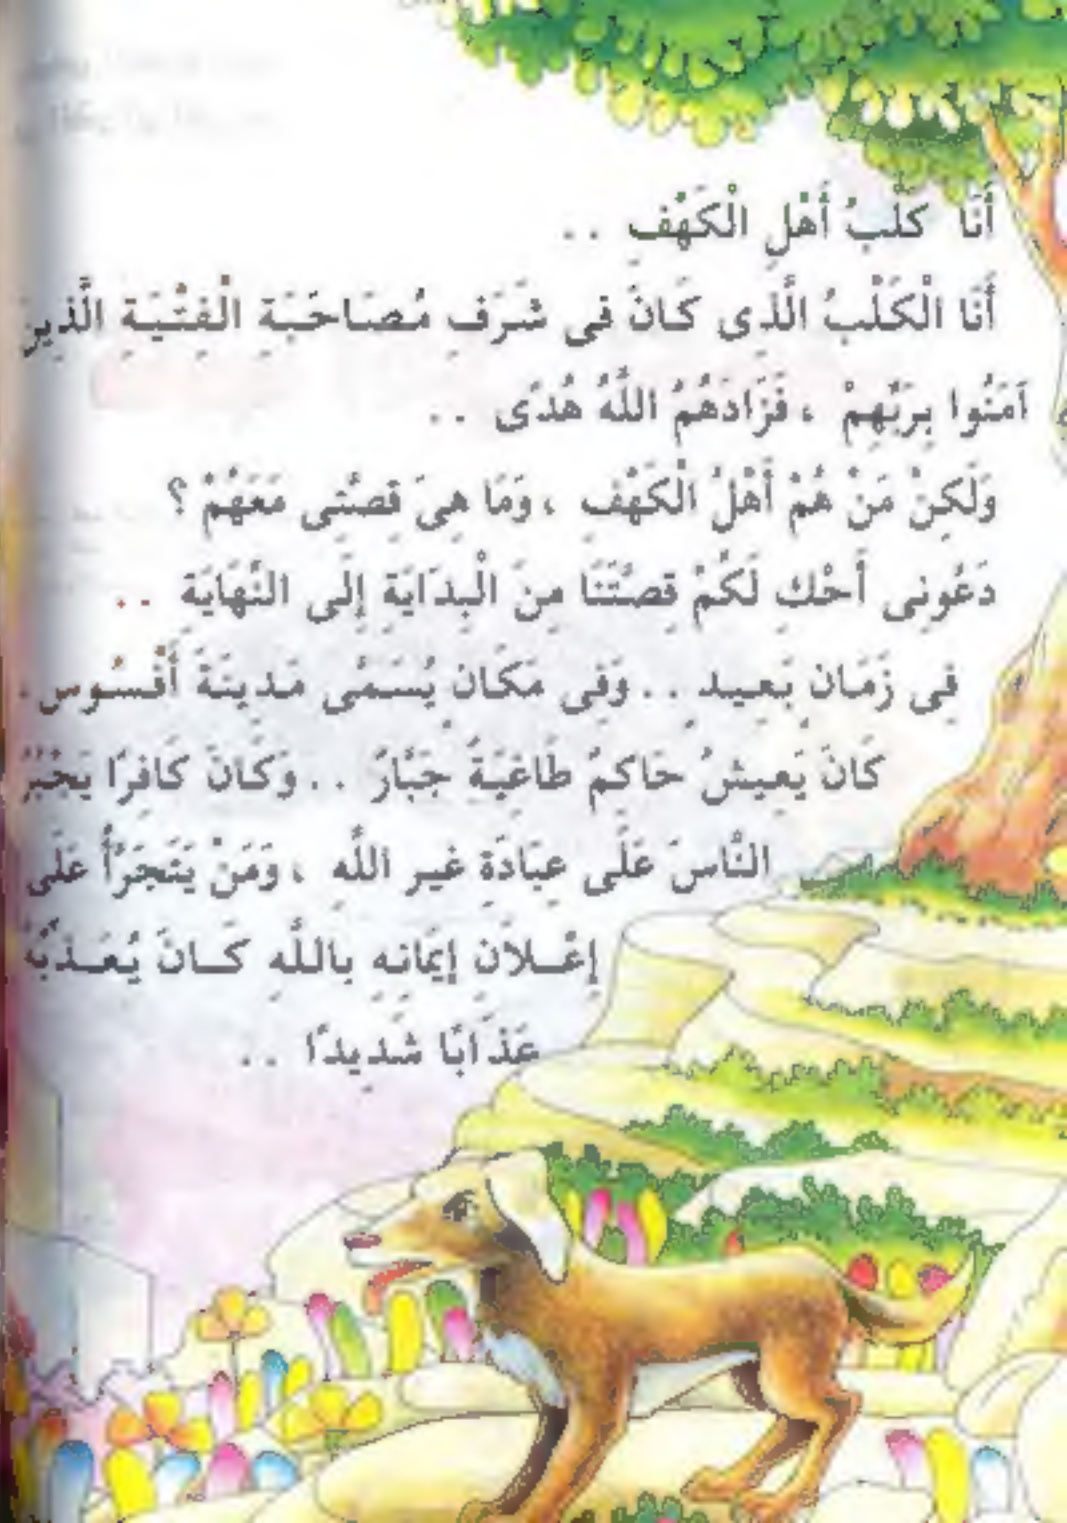 أَنَا كَلْبُ أَهْلِ الْكَهْفِ ..
أَنَا الْكَلْبُ الَّذِى كَانَ فِى شَرَفِ مُصَاحَبَةِ الْفِتْيَةِ الَّذِينَ
آمَنُوا بِرَبِّهِمْ ، فَزَادَهُمُ اللَّهُ هُدًى ..
وَلَكِنْ مَنْ هُمْ أَهْلُ الْكَهْفِ ، وَمَا هِىَ قِصَّتِى مَعَهُمْ ؟
دَعُونِى أَحْكِ لَكُمْ قِصَّتَنَا مِنَ الْبِدَايَةِ إِلَى النِّهَايَةِ ..
فِى زَمَانٍ بَعِيدٍ .. وَفِى مَكَانٍ يُسَمَّى مَدِينَةَ أَفْسُوس .
كَانَ يَعِيشُ حَاكِمٌ طَاغِيَةٌ جَبَّارٌ .. وَكَانَ كَافِرًا يَجْبُرُ
النَّاسَ عَلَى عِبَادَةِ غيرِ اللَّهِ ، وَمَنْ يَتَجَرَّأُ عَلَى
إِعْلاَنِ إِيمَانِهِ بِاللَّهِ كَانَ يُعَذِّبُهُ
عَذَابًا شَدِيدًا ..